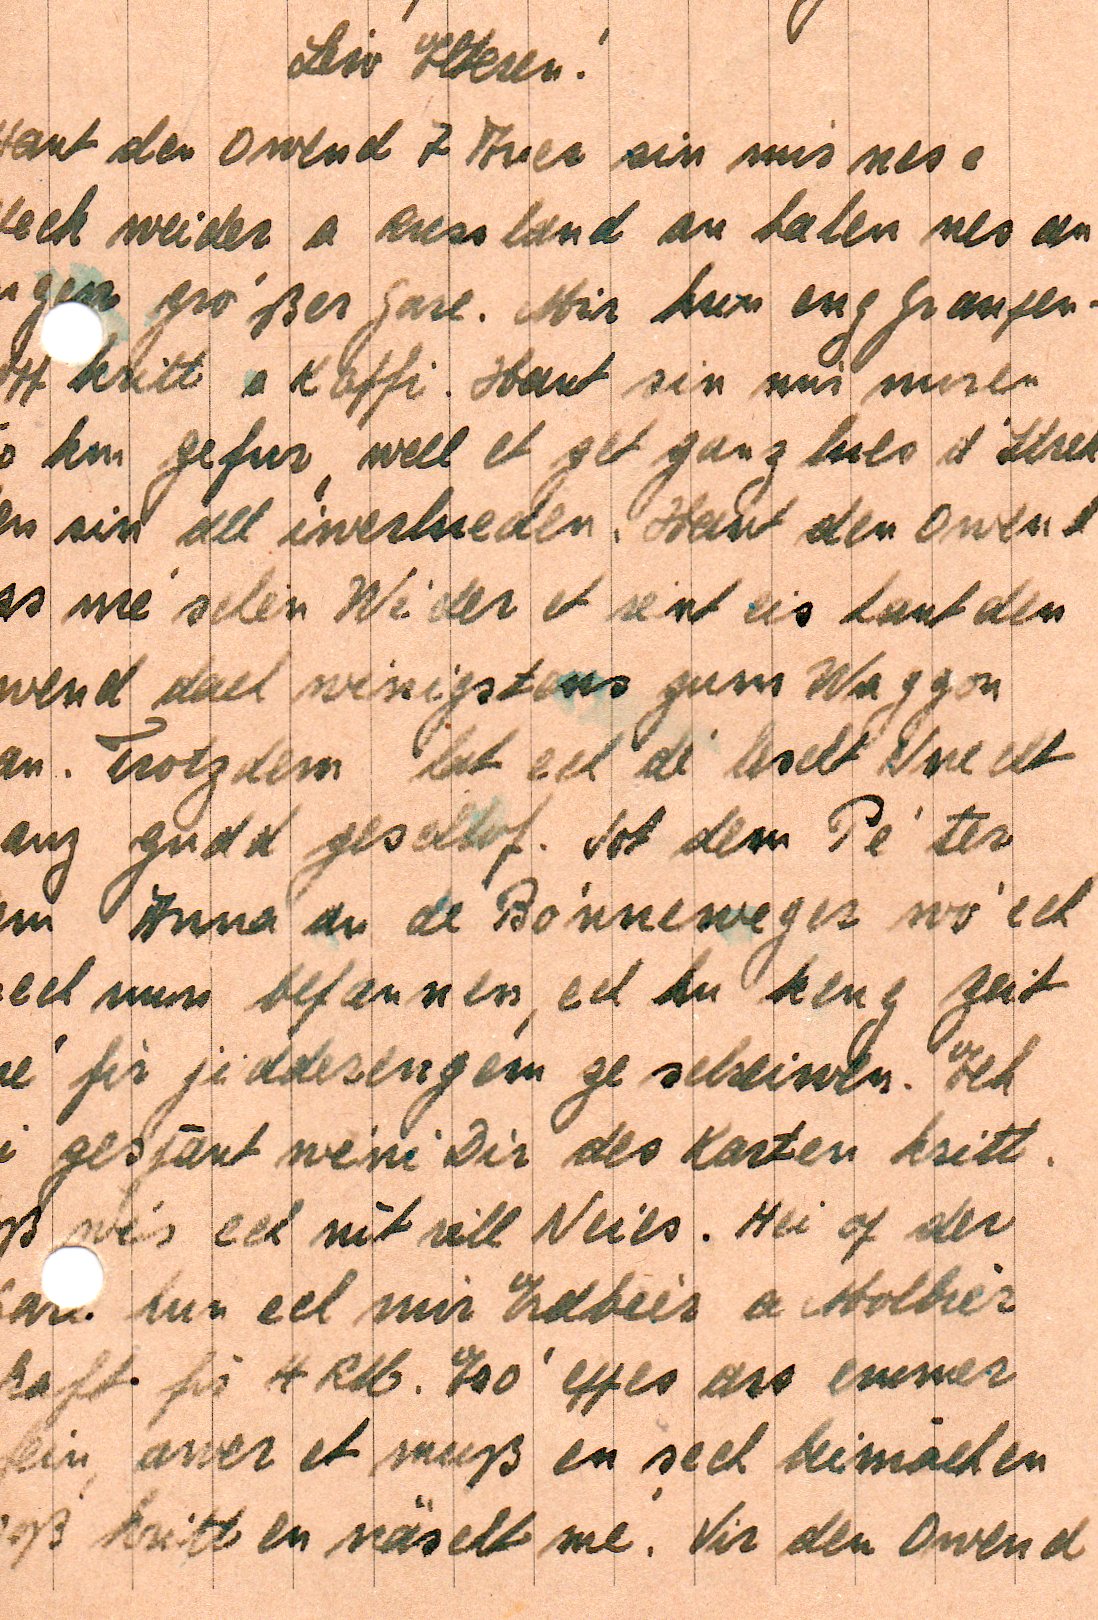 Leiw Elteren!
Haut den Owend 7 Auer sin mir nes e
Steck weider a Russland an halen nes an
enger gro'ßer Gare. Mir hun eng Graupen-
kritt a Kaffi. Haut sin mir muren
km gefur, well et get ganz lues d'Strek
en sin all iwerlueden. Haut den Owend
ass mé selen Wieder et rent eis haut den
Owend dach winigstens zum Waggon
ran. Trotzdem hat ech dé lescht Nuecht
ganz gudd geschlof. Sot dem Pé ter
dem Anna an de Bo'nneweger wó ech
mech mom befannen, ech hu keng Zeit
mé fir jidderengém ze schreiwen. Ech
si gespant wéini Dir des Karten kritt.
Soß wés ech nit vill Neies. Hei of der
Gare hun ech mir Erdbeér a Molbier
kaft fir 4 RM. Eso' eppes ass emmer
fein, awer et muß en sech beimáchen
soß kritt en näscht mé. Vir den Owend